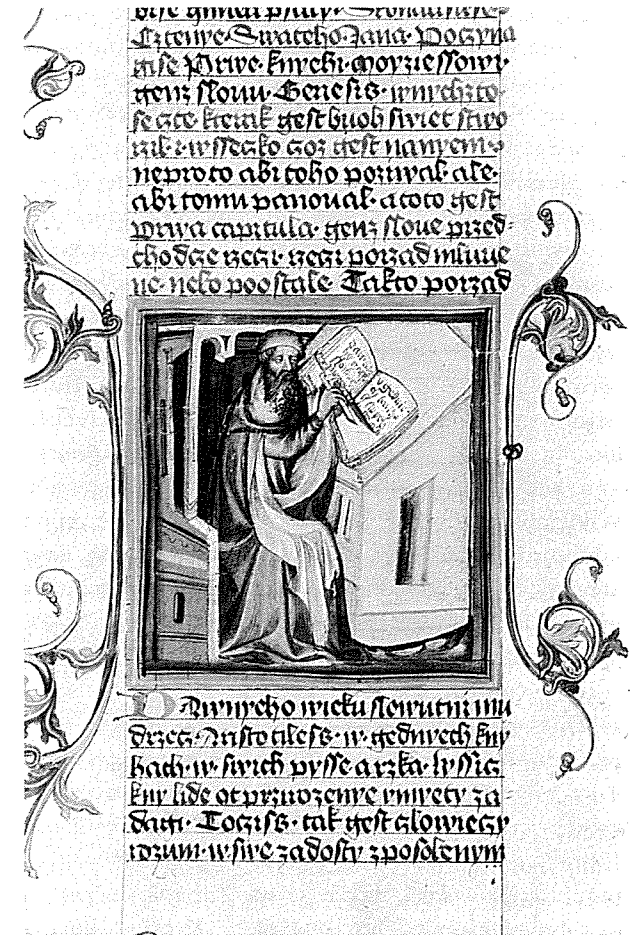 Cztenye · Swateho Jana · Poczyna
gise Prwe · knyehi · moyziessowi ·
genz slowu · Genesis · wnychzto ·
se czte kterak gest buoh swiet stwo
rzil · iwsseczko czoz gest nanyem ·
neproto abi toho poziwal · ale ·
abi tomu panowal · a toto gest
prwa capitula · genz slowe przed
chodcze rzeczi porzad mluwe
ne · nebo poostale · Takto porzad
Dawnyeho wieku slowutni mu
drzecz · Aristotiles · w · gednyech kny
hach · w · swich pysse a rzka · wssic
kny lide ot przirozenye vmyety za
dagi · Toczis · tak gest czlowieczy
rozum · w swe zadosty zposobenym